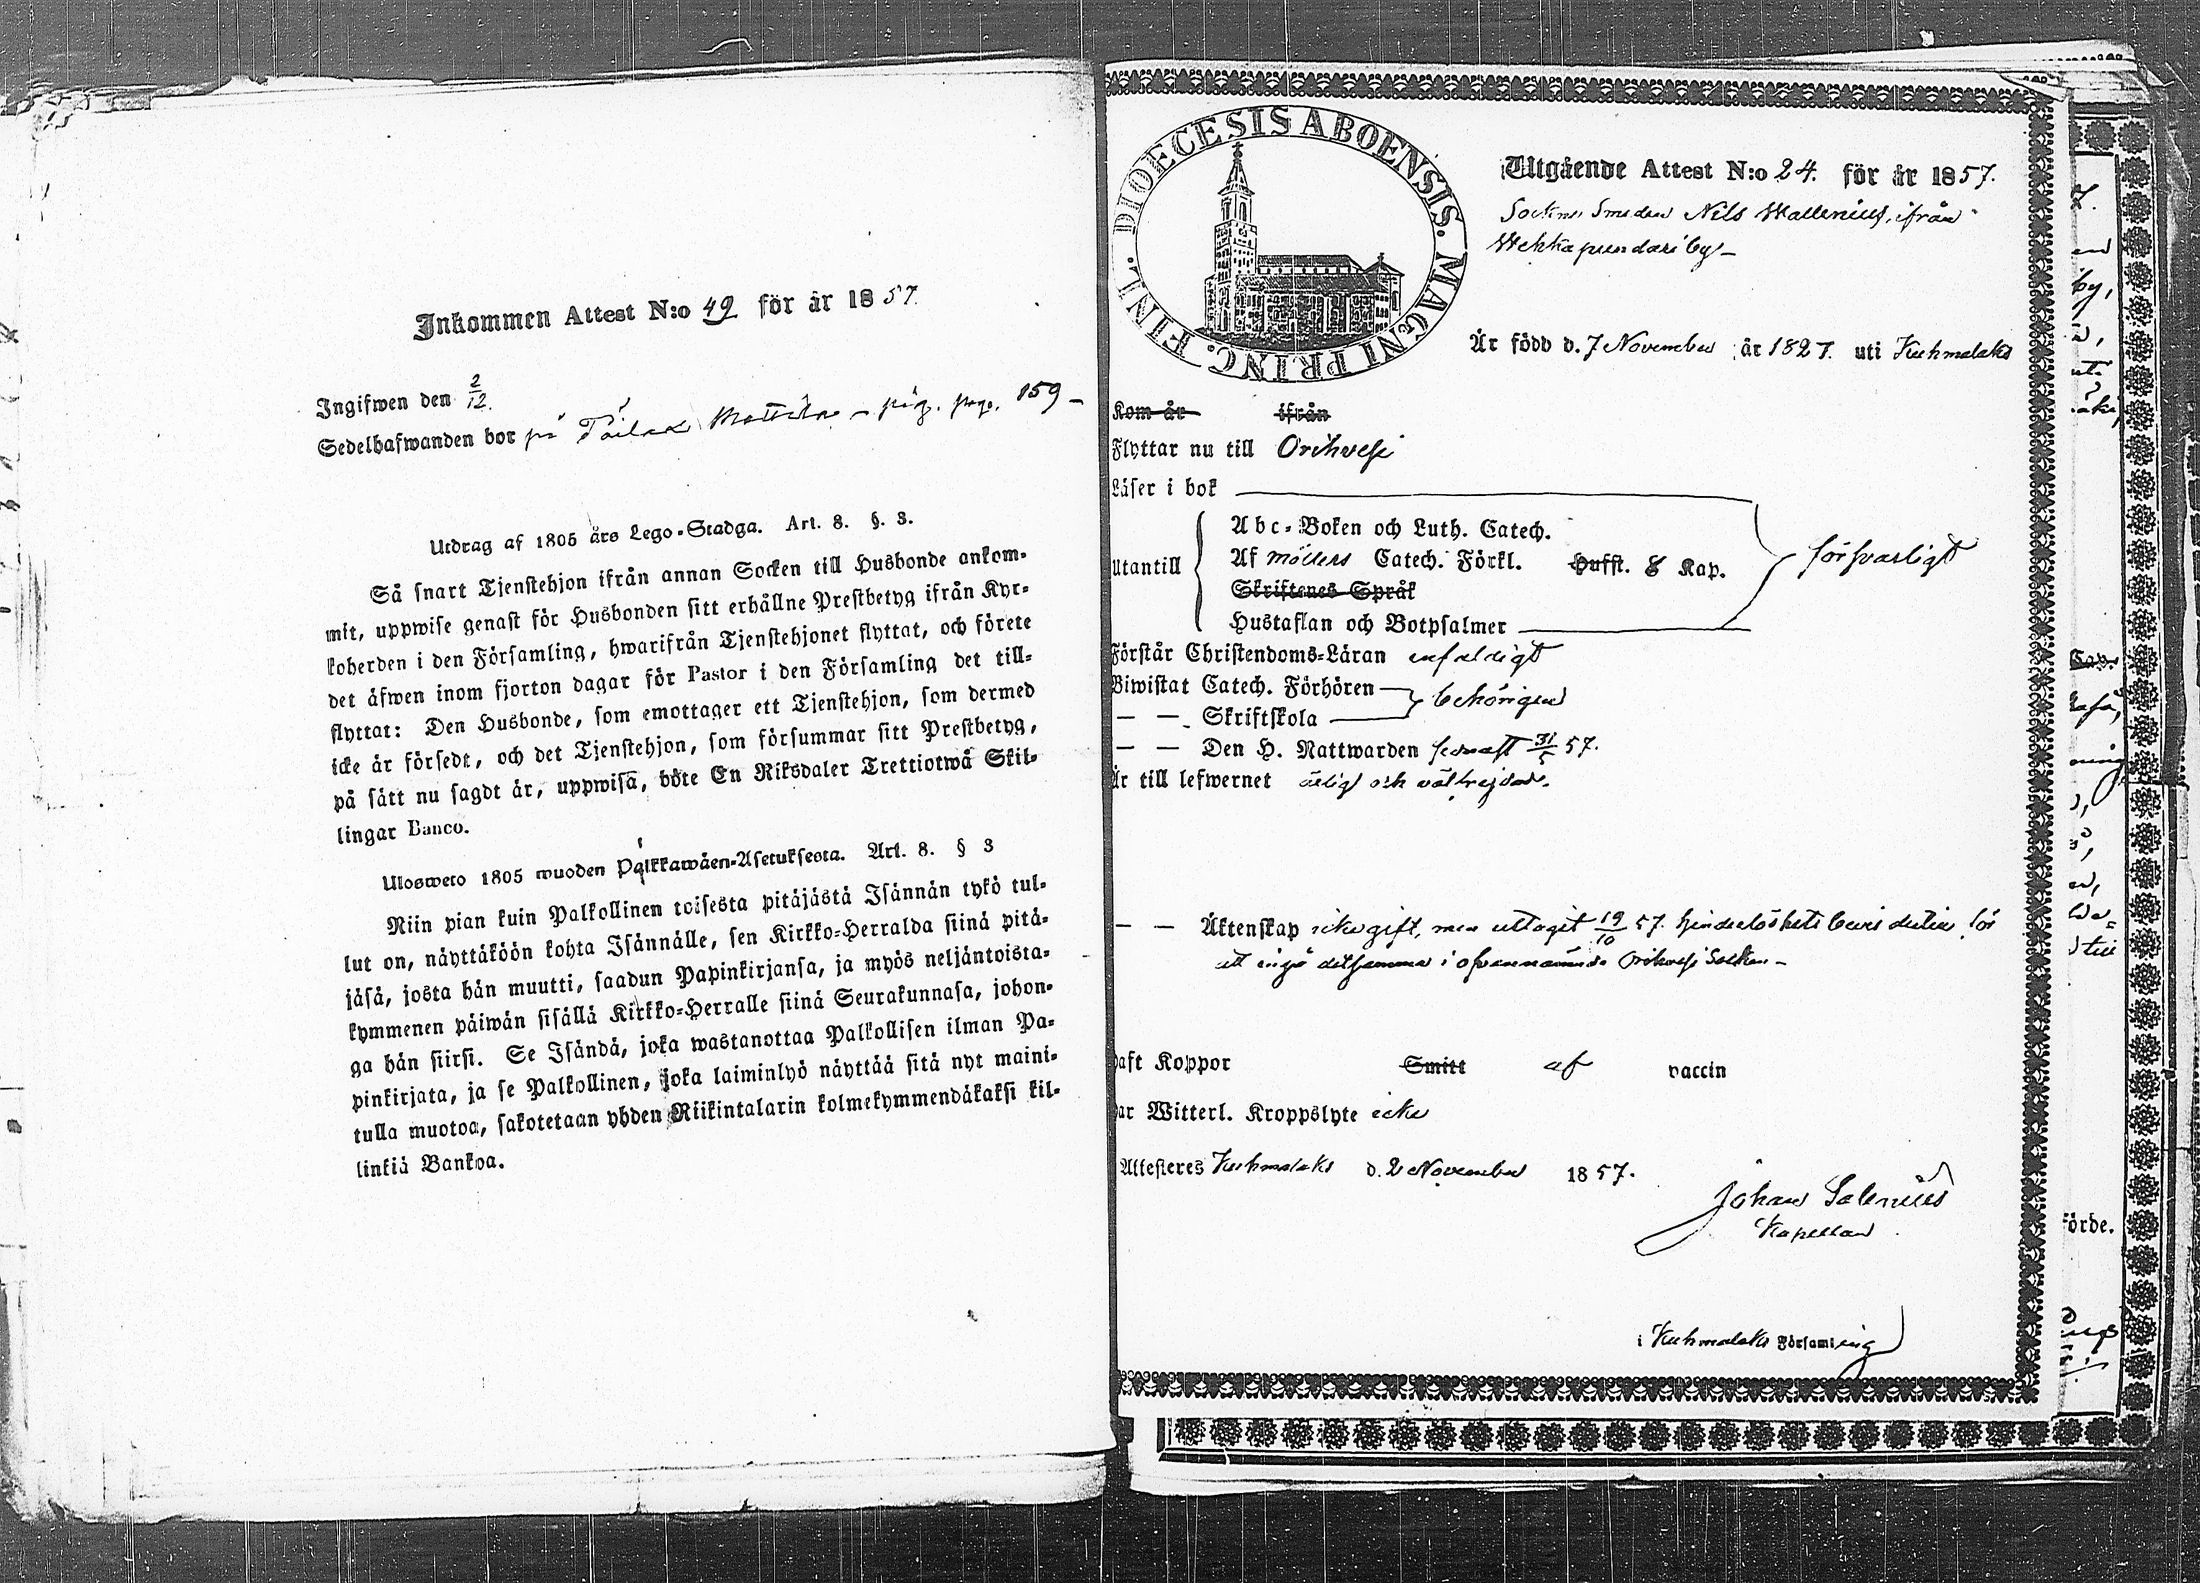 Inkommen Attest N:o 49 för år 1857.
Ingifwen den 2/12.
Sedelhafwanden bor på Päilax Mattila – pag. 159 –
Utdrag af 1805 års Lego-Stadga. Art. 8. §. 3.
Så snart Tjenstehjon ifrån annan Socken till Husbonde ankom-
mit, uppwise genast för Husbonden sitt erhållne Prestbetyg ifrån Kyr-
koherden i den Församling, hwarifrån Tjenstehjonet flyttat, och förete
det äfwen inom fjorton dagar för Pastor i den Församling det till-
flyttat: Den Husbonde, som emottager ett Tjenstehjon, som dermed
icke är försedt, och det Tjenstehjon, som försummar sitt Prestbetyg,
på sätt nu sagdt är, uppwisa, böte En Riksdaler Trettiotwå Skil-
lingar Banco.
Ulosweto 1805 wuoden Palkkawäen-Asetuksesta. Art. 8. § 3
Niin pian kuin Palkollinen toisesta pitäjästä Isännän tykö tul-
lut on, näyttäköön kohta Isännälle, sen Kirkko-Herralda siinä pitä-
jäsä, josta hän muutti, saadun Papinkirjansa, ja myös neljäntoista-
kymmenen päiwän sisällä Kirkko-Herralle siinä Seurakunnasa, johon-
ga hän siirsi. Se Isändä, joka wastanottaa Palkollisen ilman Pa-
pinkirjata, ja se Palkollinen, joka laiminlyö näyttää sitä nyt maini-
tulla muotoa, sakotetaan yhden Riikintalarin kolmekymmendäkaksi kil-
linkiä Bankoa.
DIOECESIS ABOENSIS. MAGNI PRINC. FINL.
Utgående Attest N:o 24. för år 1857.
Sockne Smeden Nils Wallenius, ifrån
Wehkapundari by –
Är född d. 7 November år 1827. uti Kuhmalaks
Kom år ifrån
Flyttar nu till Orihvesi
Läser i bok
Utantill
Abc-Boken och Luth. Catech.
Af Möllers Catech. Förkl. Hufst. 8 Kap.
Skriftenes Språk
Hustaflan och Botpsalmer
försvarligt
Förstår Christendoms-Läran enfaldigt
Biwistat Catech. Förhören
— — Skriftskola
behörigen
— — Den H. Nattwarden senast 31/5 57.
Är till lefwernet ärlig och välfrejdad.
— — Äktenskap icke gift, men uttagit 19/10 57. hinderlöshets bevis för
att ingå detsamma i ofvannämnde Orihvesi Socken –
Haft Koppor Smitt af vaccin
Har Witterl. Kroppslyte icke
Attesteres Kuhmalaks d. 2 November 1857.
Johan Salenius
Kapellan
i Kuhmalaks Församling